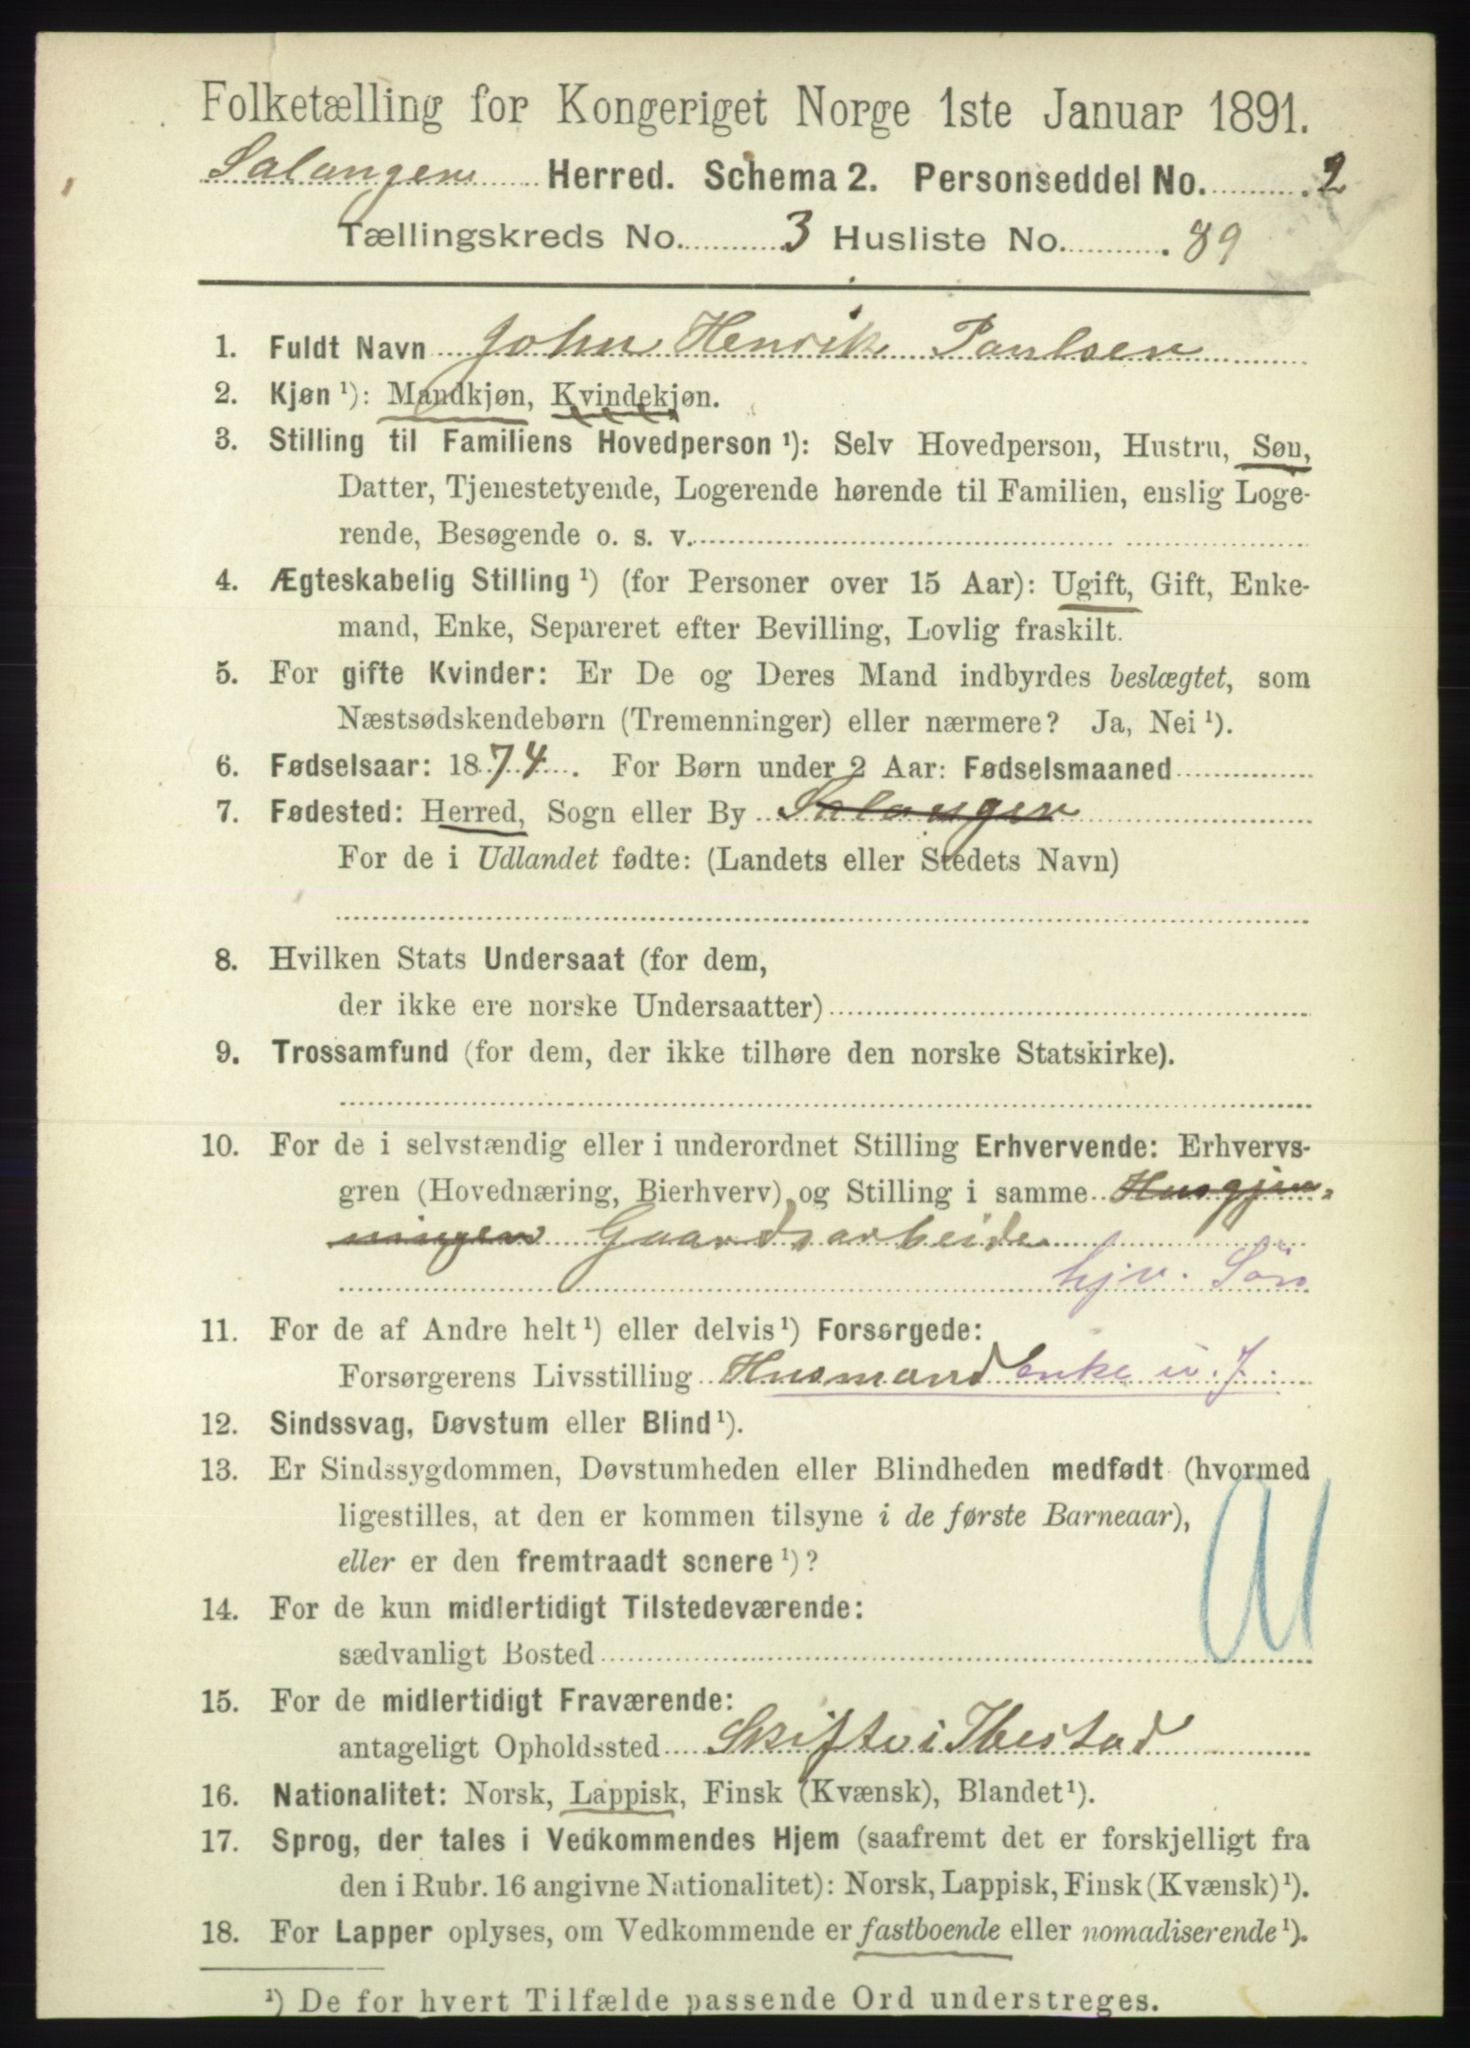 Folketælling for Kongeriget Norge 1ste Januar 1891.
Salangen Herred. Schema 2. Personseddel No. 2
Tællingskreds No. 3 Husliste No. 89
1. Fuldt Navn John Henrik Paulsen
2. Kjøn ¹): Mandkjøn, Kvindekjøn.
3. Stilling til Familiens Hovedperson ¹): Selv Hovedperson, Hustru, Søn,
Datter, Tjenestetyende, Logerende hørende til Familien, enslig Loge-
rende, Besøgende o. s. v.
4. Ægteskabelig Stilling ¹) (for Personer over 15 Aar): Ugift, Gift, Enke-
mand, Enke, Separeret efter Bevilling, Lovlig fraskilt.
5. For gifte Kvinder: Er De og Deres Mand indbyrdes beslægtet, som
Næstsødskendebørn (Tremenninger) eller nærmere? Ja, Nei ¹).
6. Fødselsaar: 1874. For Børn under 2 Aar: Fødselsmaaned
7. Fødested: Herred, Sogn eller By Salangen
For de i Udlandet fødte: (Landets eller Stedets Navn)
8. Hvilken Stats Undersaat (for dem,
der ikke ere norske Undersaatter)
9. Trossamfund (for dem, der ikke tilhøre den norske Statskirke).
10. For de i selvstændig eller i underordnet Stilling Erhvervende: Erhvervs-
gren (Hovednæring, Bierhverv) og Stilling i samme Husgjer-
ningen Gaardsarbeide
hjv. Søn
11. For de af Andre helt ¹) eller delvis ¹) Forsørgede:
Forsørgerens Livsstilling Husmandenke u. J.
12. Sindssvag, Døvstum eller Blind ¹).
13. Er Sindssygdommen, Døvstumheden eller Blindheden medfødt (hvormed
ligestilles, at den er kommen tilsyne i de første Barneaar),
eller er den fremtraadt senere ¹)?
14. For de kun midlertidigt Tilstedeværende:
sædvanligt Bosted
15. For de midlertidigt Fraværende:
antageligt Opholdssted i Ibestad
16. Nationalitet: Norsk, Lappisk, Finsk (Kvænsk), Blandet ¹).
17. Sprog, der tales i Vedkommendes Hjem (saafremt det er forskjelligt fra
den i Rubr. 16 angivne Nationalitet): Norsk, Lappisk, Finsk (Kvænsk) ¹).
18. For Lapper oplyses, om Vedkommende er fastboende eller nomadiserende ¹).
¹) De for hvert Tilfælde passende Ord understreges.